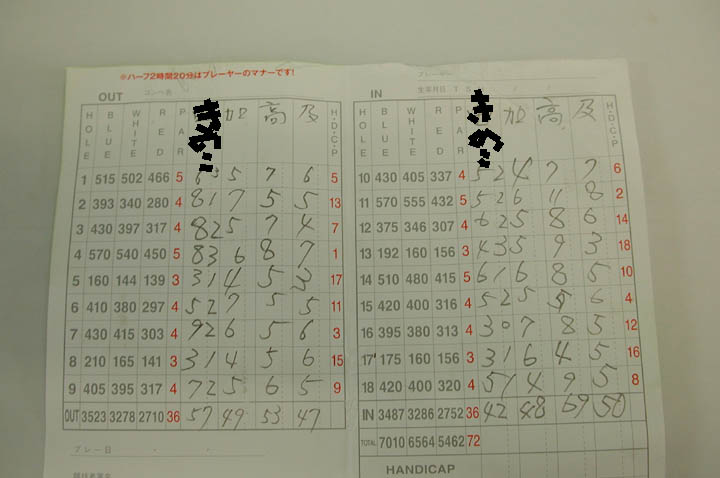 ※ハーフ2時間20分はプレーヤーのマナーです!
OUT コンペ名
HOLE BLUE WHITE RED PAR きの… 加 高 及 H.D.C.P
1 515 502 466 5 6 3 5 7 6 5
2 393 340 280 4 8 1 7 5 5 13
3 430 397 317 4 8 2 5 7 4 7
4 570 540 450 5 8 3 6 8 7 1
5 160 144 139 3 3 1 4 5 3 17
6 410 380 297 4 5 2 7 5 5 11
7 430 415 303 4 9 2 6 5 6 3
8 210 165 141 3 3 1 4 5 6 15
9 405 395 317 4 7 2 5 6 5 9
OUT 3523 3278 2710 36 57 49 53 47
プレー日
IN プレーヤー
生年月日 T S
HOLE BLUE WHITE RED PAR きの… 加 高 及 H.D.C.P
10 430 405 337 4 5 2 4 7 7 6
11 570 555 432 5 5 2 6 11 8 2
12 375 346 307 4 6 2 5 8 6 14
13 192 160 156 3 4 3 5 9 3 18
14 510 480 415 5 6 1 6 8 5 10
15 420 400 316 4 5 2 5 5 6 4
16 395 380 313 4 3 0 7 8 5 12
17 175 160 156 3 3 1 6 4 5 16
18 420 400 320 4 5 1 4 9 5 8
IN 3487 3286 2752 36 42 48 69 50
TOTAL 7010 6564 5462 72
HANDICAP